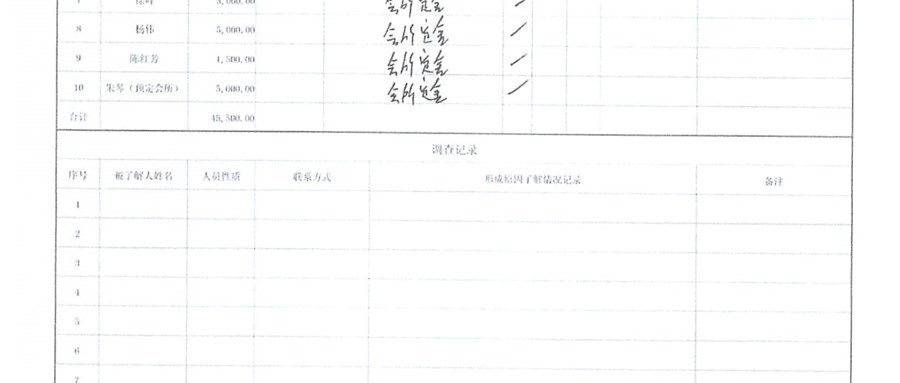 5,000.00 会所定金
8 杨伟 5,000.00 会所定金
9 陈红芳 4,500.00 会所定金
10 朱琴（预定会所） 5,000.00 会所定金
合计 45,500.00
调查记录
序号 被了解人姓名 人员性质 联系方式 形成原因了解情况记录 备注
1
2
3
4
5
6
7